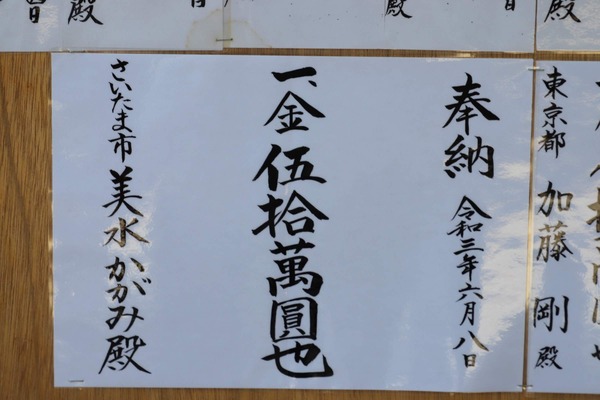 東京都 加藤 剛 殿
奉納 令和三年六月八日
一、金伍拾萬圓也
さいたま市 美水かがみ殿
殿
殿
殿